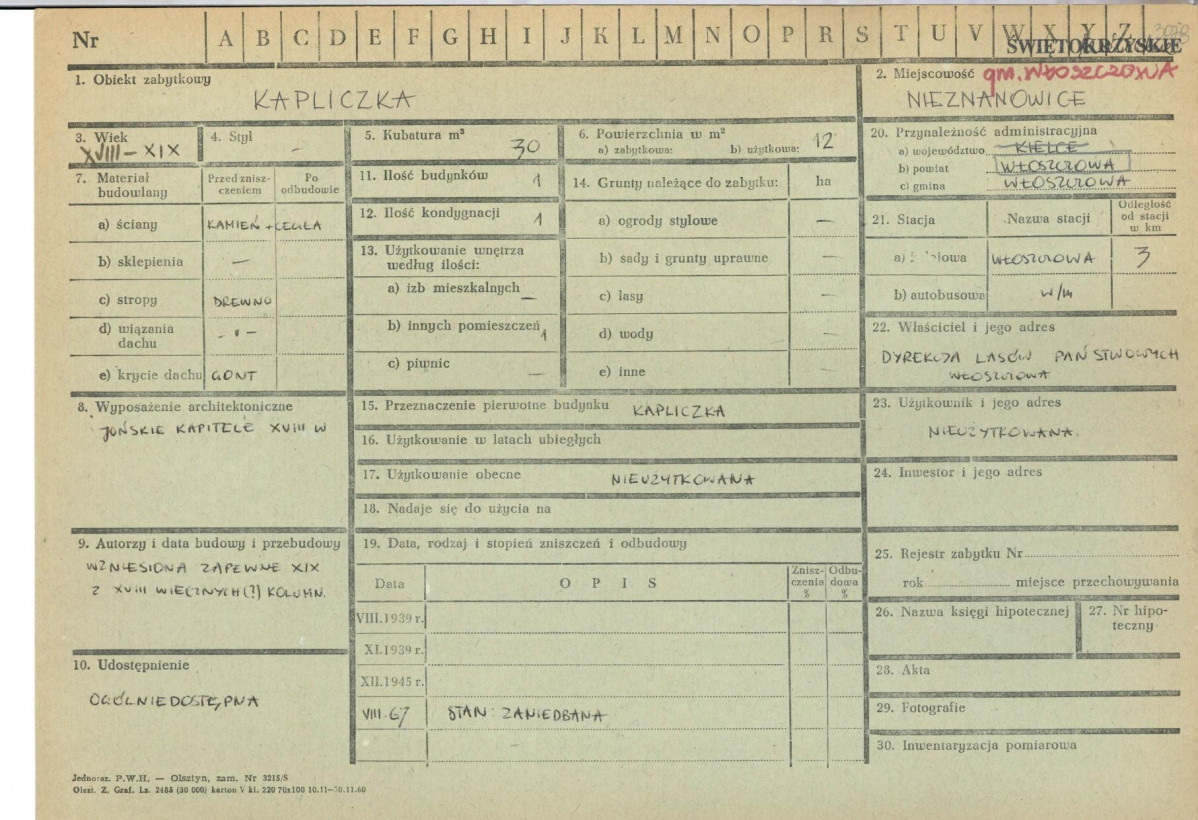 Nr A B C D E F G H I J K L M N O P R S T U V W X Y Z
ŚWIĘTOKRZYSKIE
1. Obiekt zabytkowy
KAPLICZKA
2. Miejscowość gm. WŁOSZCZOWA
NIEZNANOWICE
3. Wiek
XVIII – XIX
4. Styl
–
5. Kubatura m³
30
6. Powierzchnia w m²
a) zabytkowa: b) użytkowa: 12
20. Przynależność administracyjna
a) województwo KIELCE
b) powiat WŁOSZCZOWA
c) gmina WŁOSZCZOWA
7. Materiał budowlany
Przed znisz-
czeniem
Po
odbudowie
a) ściany KAMIEŃ + CEGŁA
b) sklepienia –
c) stropy DREWNO
d) wiązania
dachu - " -
e) krycie dachu GONT
11. Ilość budynków 1
12. Ilość kondygnacji 1
13. Użytkowanie wnętrza
według ilości:
a) izb mieszkalnych –
b) innych pomieszczeń 1
c) piwnic –
14. Grunty należące do zabytku: ha
a) ogrody stylowe –
b) sady i grunty uprawne –
c) lasy –
d) wody –
e) inne –
21. Stacja Nazwa stacji
Odległość
od stacji
w km
a) WŁOSZCZOWA 3
b) autobusowa w/m
22. Właściciel i jego adres
DYREKCJA LASÓW PAŃSTWOWYCH
WŁOSZCZOWA
8. Wyposażenie architektoniczne
JOŃSKIE KAPITELE XVIII W
15. Przeznaczenie pierwotne budynku KAPLICZKA
16. Użytkowanie w latach ubiegłych
17. Użytkowanie obecne NIEUŻYTKOWANA
18. Nadaje się do użycia na
23. Użytkownik i jego adres
NIEUŻYTKOWANA.
24. Inwestor i jego adres
9. Autorzy i data budowy i przebudowy
WZNIESIONA ZAPEWNE XIX
Z XVIII WIECZNYCH (?) KOLUMN.
19. Data, rodzaj i stopień zniszczeń i odbudowy
Data OPIS
Znisz-
czenia
%
Odbu-
dowa
%
VIII.1939 r.
XI.1939 r.
XII.1945 r.
VIII-67 STAN: ZANIEDBANA
–
10. Udostępnienie
OGÓLNIE DOSTĘPNA
25. Rejestr zabytku Nr
rok miejsce przechowywania
26. Nazwa księgi hipotecznej
27. Nr hipo-
teczny
28. Akta
29. Fotografie
30. Inwentaryzacja pomiarowa
Jednoraz. P.W.H. — Olsztyn, zam. Nr 3215/S
Olszt. Z. Graf. Lz. 2485 (30 000) karton V kl. 220 70x100 10.11—30.11.60